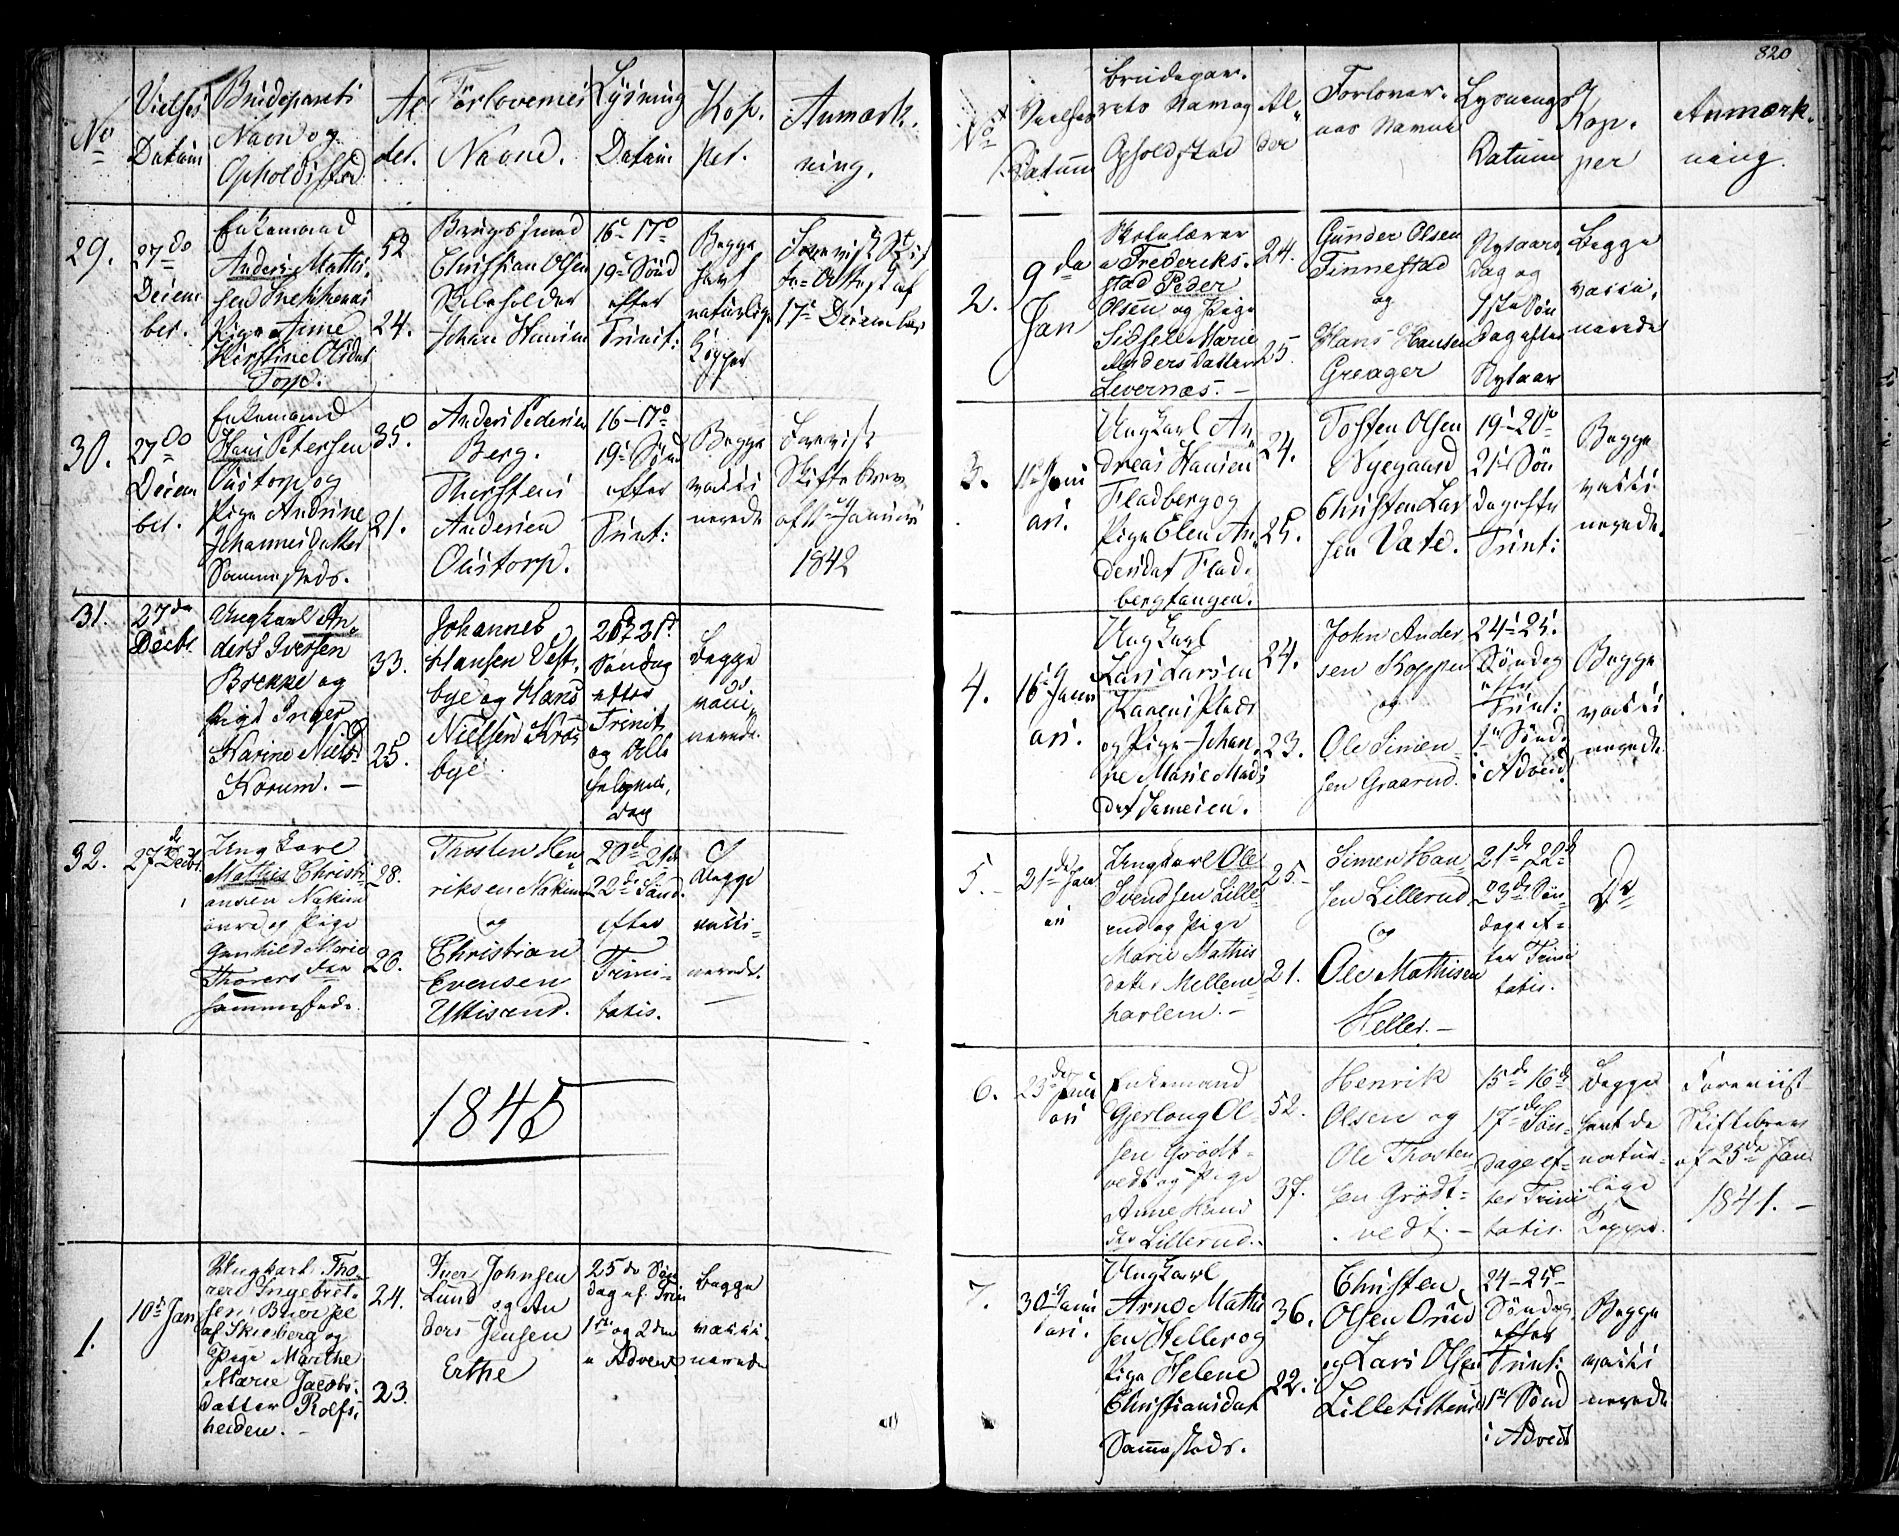 No
Vielses
Datum
Brudeparrets
Navn og
Opholdssted
Al
der.
Forlovernes
Navne.
Lysning
Datum
Kop.
per.
Anmærk.
ning.
29.
27de
Decem
ber.
Enkemand
Anders Mathi.
sen Snekkenæs
Pige Anne
Kirstine Olsdat
Torp.
52
24.
Christian Olsen
Johan Hansen
16e 17e
19e Sønd
efter
Trinit:
Begge
havt
naturlige
Kopper
17e December
30.
27de
Decem
ber.
Enkemand
Hans Petersen
Oustorp og
Pige Andrine
Johannesdatter
Sammesteds.
35.
21.
Anders Pedersen
Berg.
Thorstens
Andersen
Oustorp.
16-17e
19e Sønd
efter
Trint:
Begge
vacci
nerede
Forevist
Skiftebrev
af 11e Januar
1842
31.
27de
Decbr
Ungkarl An
ders Iversen
Brekke og
Pige Inger
Karine Nielsd
Korum. —
33.
25.
Johannes
Hansen Vest
bye og Hans
Nielsen Kros
bye
20 21d
Søndag
efter
Trinit.
og Alle
helgens
dag
Begge
vacci
nerede.
32.
27de Decbr
Ungkarl
Mathis Christi
ansen Nakim
Pige
Gunhild Marie
Thorers dter
sammesteds
28.
20.
Thosten Hen
riksen Nakim
og
Christian
Evensen
Ultisrud.
20de 21de
22de Sønd.
efter
Trini-
tatis.
Begge
vacci-
nerede.
1845
1.
10de Jan
Ungkarl Tho
rer Ingebret
sen Buer
af Skieberg og
Pige Marthe
Marie Jacobs
datter Rolfs
heiden. —
24.
23.
Iver Johnsen
Lund
og An
ders Jensen
Erthe
25de Søn
dag ef. Trin
1ste og 2den
i Advent
Begge
vacci.
nerede
820
No
Vielses
Datum
Brudepar.
rets Navn og
Opholdssted
Al
der
Forlover.
nes Navne
Lysnings
Datum
Kop.
per
Anmærk.
ning.
2.
9de
Jan
Skolelærer
i Frederiks.
stad Peder
Olsen og Pige
Sidselle Marie
Anders datter
Levernæs. —
24.
25.
Gunder Olsen
Tinnestad
og
Hans Hansen
Greager
Nytaars
dag og
1ste Søn
dag efter
Nytaar
Begge
vacci.
nerede
3.
11e Janu
ari.
Ungkarl An
dreas Hansen
Fladberg og
Pige Elen An
dersdat Flad.
bergtangen.
24.
25.
Tosten Olsen
Nygaard
Christen Lar
sen Vate.
19-20e
21e Søn
dag efter
Trint:
Begge
vacci
nerede.
4.
16e Janu
ari.
Ungkarl
Lars Larsen
Plads
og Pige Johan
ne Marie Mads
dat Jameien.
24.
23.
John Ander
sen Koppen
og
Ole Simen
sen Graarud.
24-25.
Søndag
efter
Trint:
1e Sønd.
i Advent
Begge
vacci
nerede
5.
21de Janu
ari
Ungkarl Ole
Svendsen Lille
rud og Pige
Marie Mathis
datter Mellem
harlem. —
25.
21.
Simen Han
sen Lillerud
og
Ole Mathisen
Heller. —
21de 22de
23de Søn
dage ef-
ter Trini
tatis.
Do
6.
23de Janu
ari
Enkemand
Gjerloug Ol-
sen Grödt-
vedt og Pige
Anne Hans
dtr Lillerud.
52.
37.
Henrik
Olsen og
Ole Thosten
sen Grödt-
vedt. —
15de 16de
17de Søn-
dage ef-
ter Trini
tatis.
Begge
havt de
natur-
lige
Kopper.
Foreviist
Skiftebrev
af 25de Jan
1841. —
7.
30e Janu
ari.
Ungkarl
Arne Mathi
sen Heller og
Pige Helene
Christiansdat
Sammesteds.
36.
22.
Christen
Olsen Orud
og Lars Olsen
24-25e
Søndag
efter
Trint:
1e Sønd
i Advent
Begge
vacci
nerede